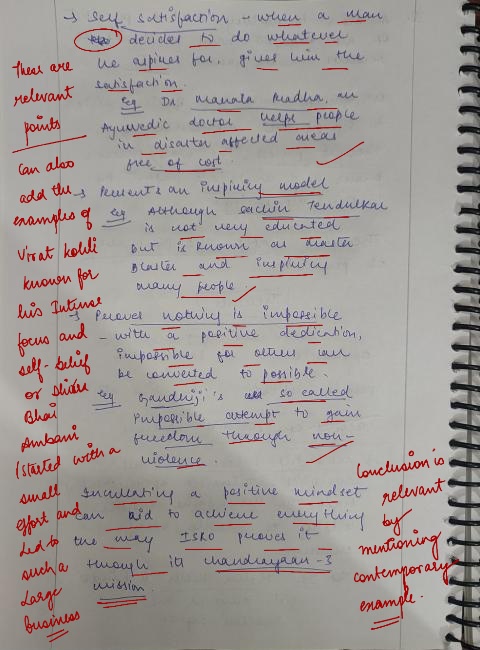 → Self satisfaction - when a man
decides to do whatever
he aspires for, gives him the
satisfaction.
Eg Dr. Manala Rudha, an
Ayurvedic doctor helps people
in disaster affected areas
free of cost.
→ Presents an inspiring model
Eg Although Sachin Tendulkar
is not very educated
but is known as master
blaster and inspiring
many people.
→ Proves nothing is impossible
- with a positive dedication,
impossible for others can
be converted to possible.
Eg Gandhiji's so called
impossible attempt to gain
freedom through non-
violence.
Inculcating a positive mindset
can aid to achieve everything
the way ISRO proves it
through its chandrayaan-3
mission.
These are
relevant
points
Can also
add the
examples of
Virat Kohli
known for
his Intense
focus and
self-belief
or
Bhai
Ambani
(started with a
small
effort and
Led to
such a
Large
business
Conclusion is
relevant
by
mentioning
contemporary
example.